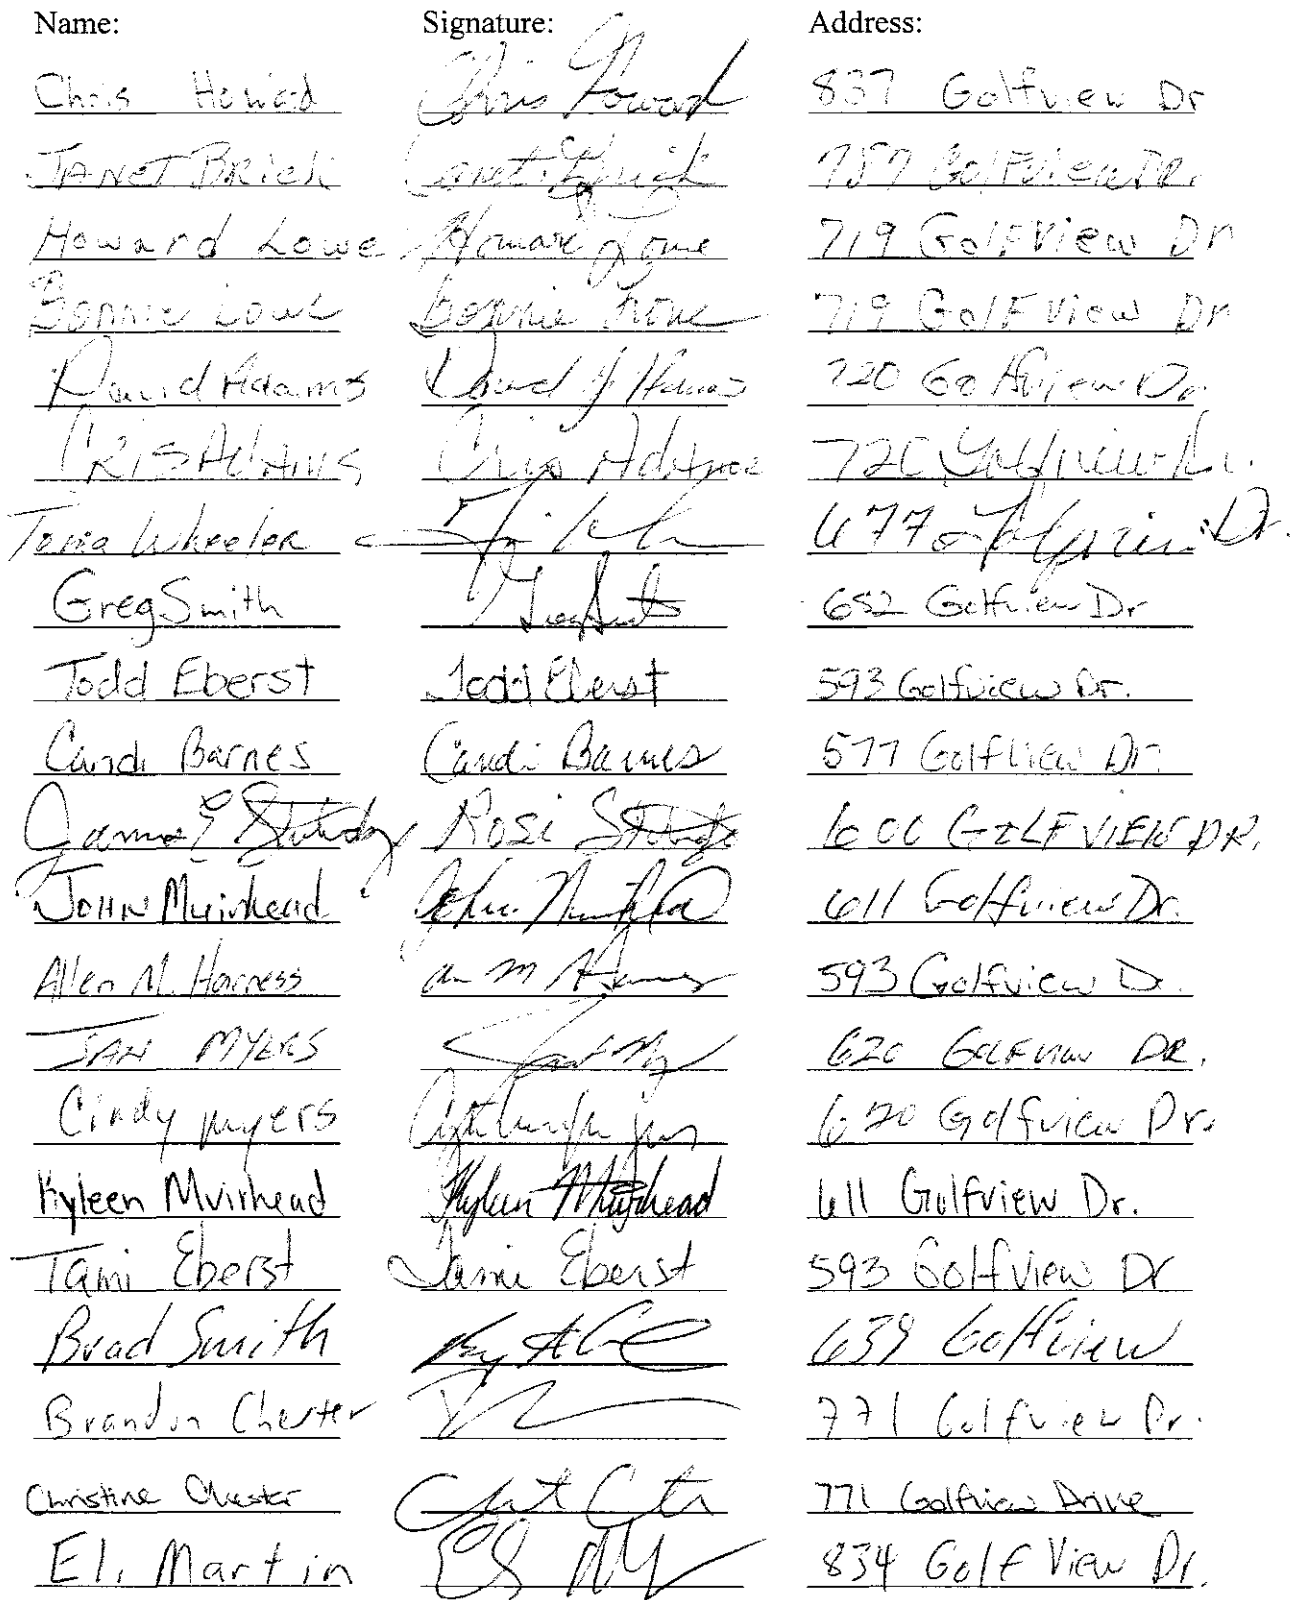 Name: Signature: Address:
Chris Howard Chris Howard 837 Golfview Dr
JANET BRICH Janet Brich 787 GolFview DR.
Howard Lowe Howard Lowe 719 GolFView Dr
Bonnie Lowe Bonnie Lowe 719 GolF View Dr
David Adams David J Adams 720 Golfview Dr.
CRIS ADAMS Cris Adams 720 Golfview Dr.
Tonia Wheeler 677 Golfview Dr.
Greg Smith Greg Smith 652 Golfview Dr
Todd Eberst Todd Eberst 593 Golfview Dr.
Candi Barnes Candi Barnes 577 Golfview Dr.
James E Rosi 600 GOLFVIEW DR.
JOHN Muirhead John Muirhead 611 Golfview Dr.
Allen M. Harness M Harness 593 Golfview Dr.
JAN MYERS Jan 620 GOLFVIEW DR.
Cindy Myers 620 Golfview Dr.
Kyleen Muirhead Kyleen Muirhead 611 Golfview Dr.
Tami Eberst Tami Eberst 593 Golfview Dr
Brad Smith 639 Golfview
Brandon Chester 771 Golfview Dr.
Christine Chester 771 Golfview Drive
Eli Martin 834 Golf View Dr.